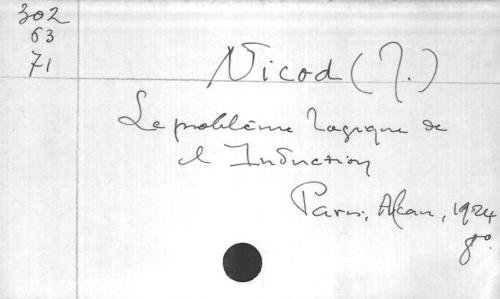 302
63
71
Nicod (J.)
Le problème logique de
l'Induction
Paris, Alcan, 1924
8º.